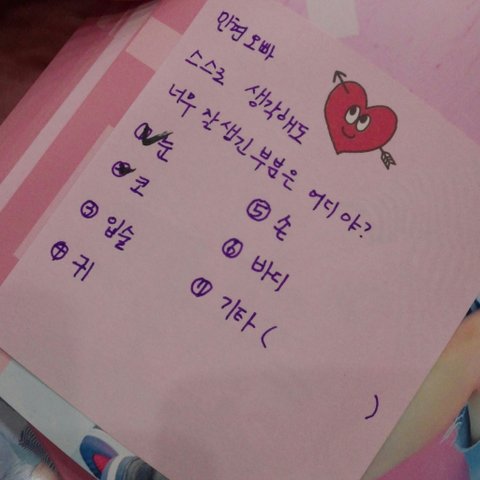 민현오빠
스스로 생각해도
너무 잘생긴 부분은 어디야?
① 눈
② 코
③ 입술
④ 귀
⑤ 손
⑥ 바디
⑦ 기타 (
)